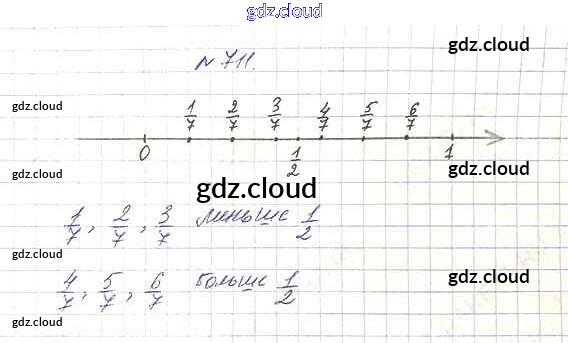 gdz.cloud
N 711.
gdz.cloud
gdz.cloud
1/7 2/7 3/7 4/7 5/7 6/7
0 1/2 1
gdz.cloud
gdz.cloud
gdz.cloud
1/7, 2/7, 3/7 меньше 1/2
gdz.cloud
4/7, 5/7, 6/7 больше 1/2
gdz.cloud
gdz.cloud